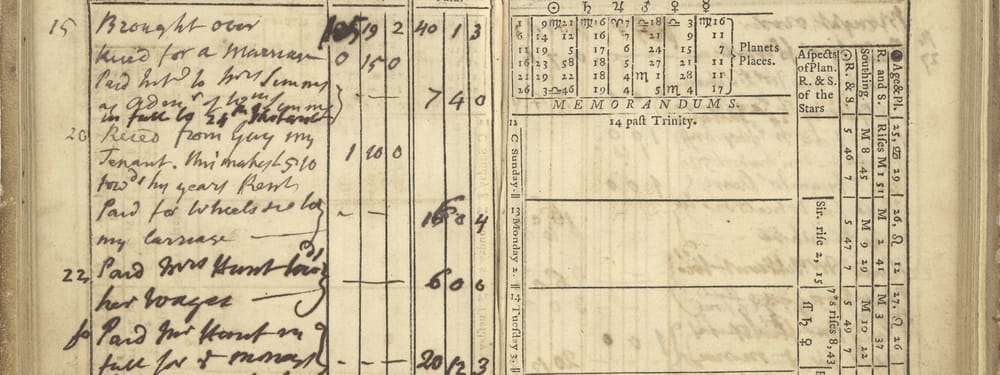 15 Brought over 125 19 2 40 1 3
Recd for a Marriage 0 15 0
Paid Intt to Mrs Simms
as Admx of
in full to 24th - - - 7 4 0
20 Recd from Guy my
Tenant. this makes £5 10 1 10 0
towds his years Rent
Paid for Wheels &c to
my Carriage - - - 16 0 4
22 Paid Mrs Hunt towds
her Wages - - - 6 0 0
Paid Mr Hunt in
full for - - - 20 12 3
☉ ♄ ♃ ♂ ♀ ☿
1 9♍21 ♍16 ♈7 ♎18 ♎ 3 ♍16
6 14 12 16 7 21 9 11
11 19 5 17 6 24 15 7
16 23 58 18 5 27 21 7
21 29 22 18 4 ♏ 1 28 11
26 3♎46 19 4 5 ♏ 4 17
Planets
Places.
MEMORANDUMS.
14 past Trinity.
12 C Sunday.
13 Monday 2.
14 Tuesday 3.
Aspects
of Plan.
R. & S.
of the
Stars
Sir. rise 2, 15
7*s rises 8, 43
☉ R. & S.
5 46 7
5 47 7
5 49 7
Southing.
M 8 45
M 9 29
M 10 22
R. and S.
Rises M 1 51
M 2 41
M 3 37
Age & Pl.
25, 29
26, ♌ 12
27, ♌ 26